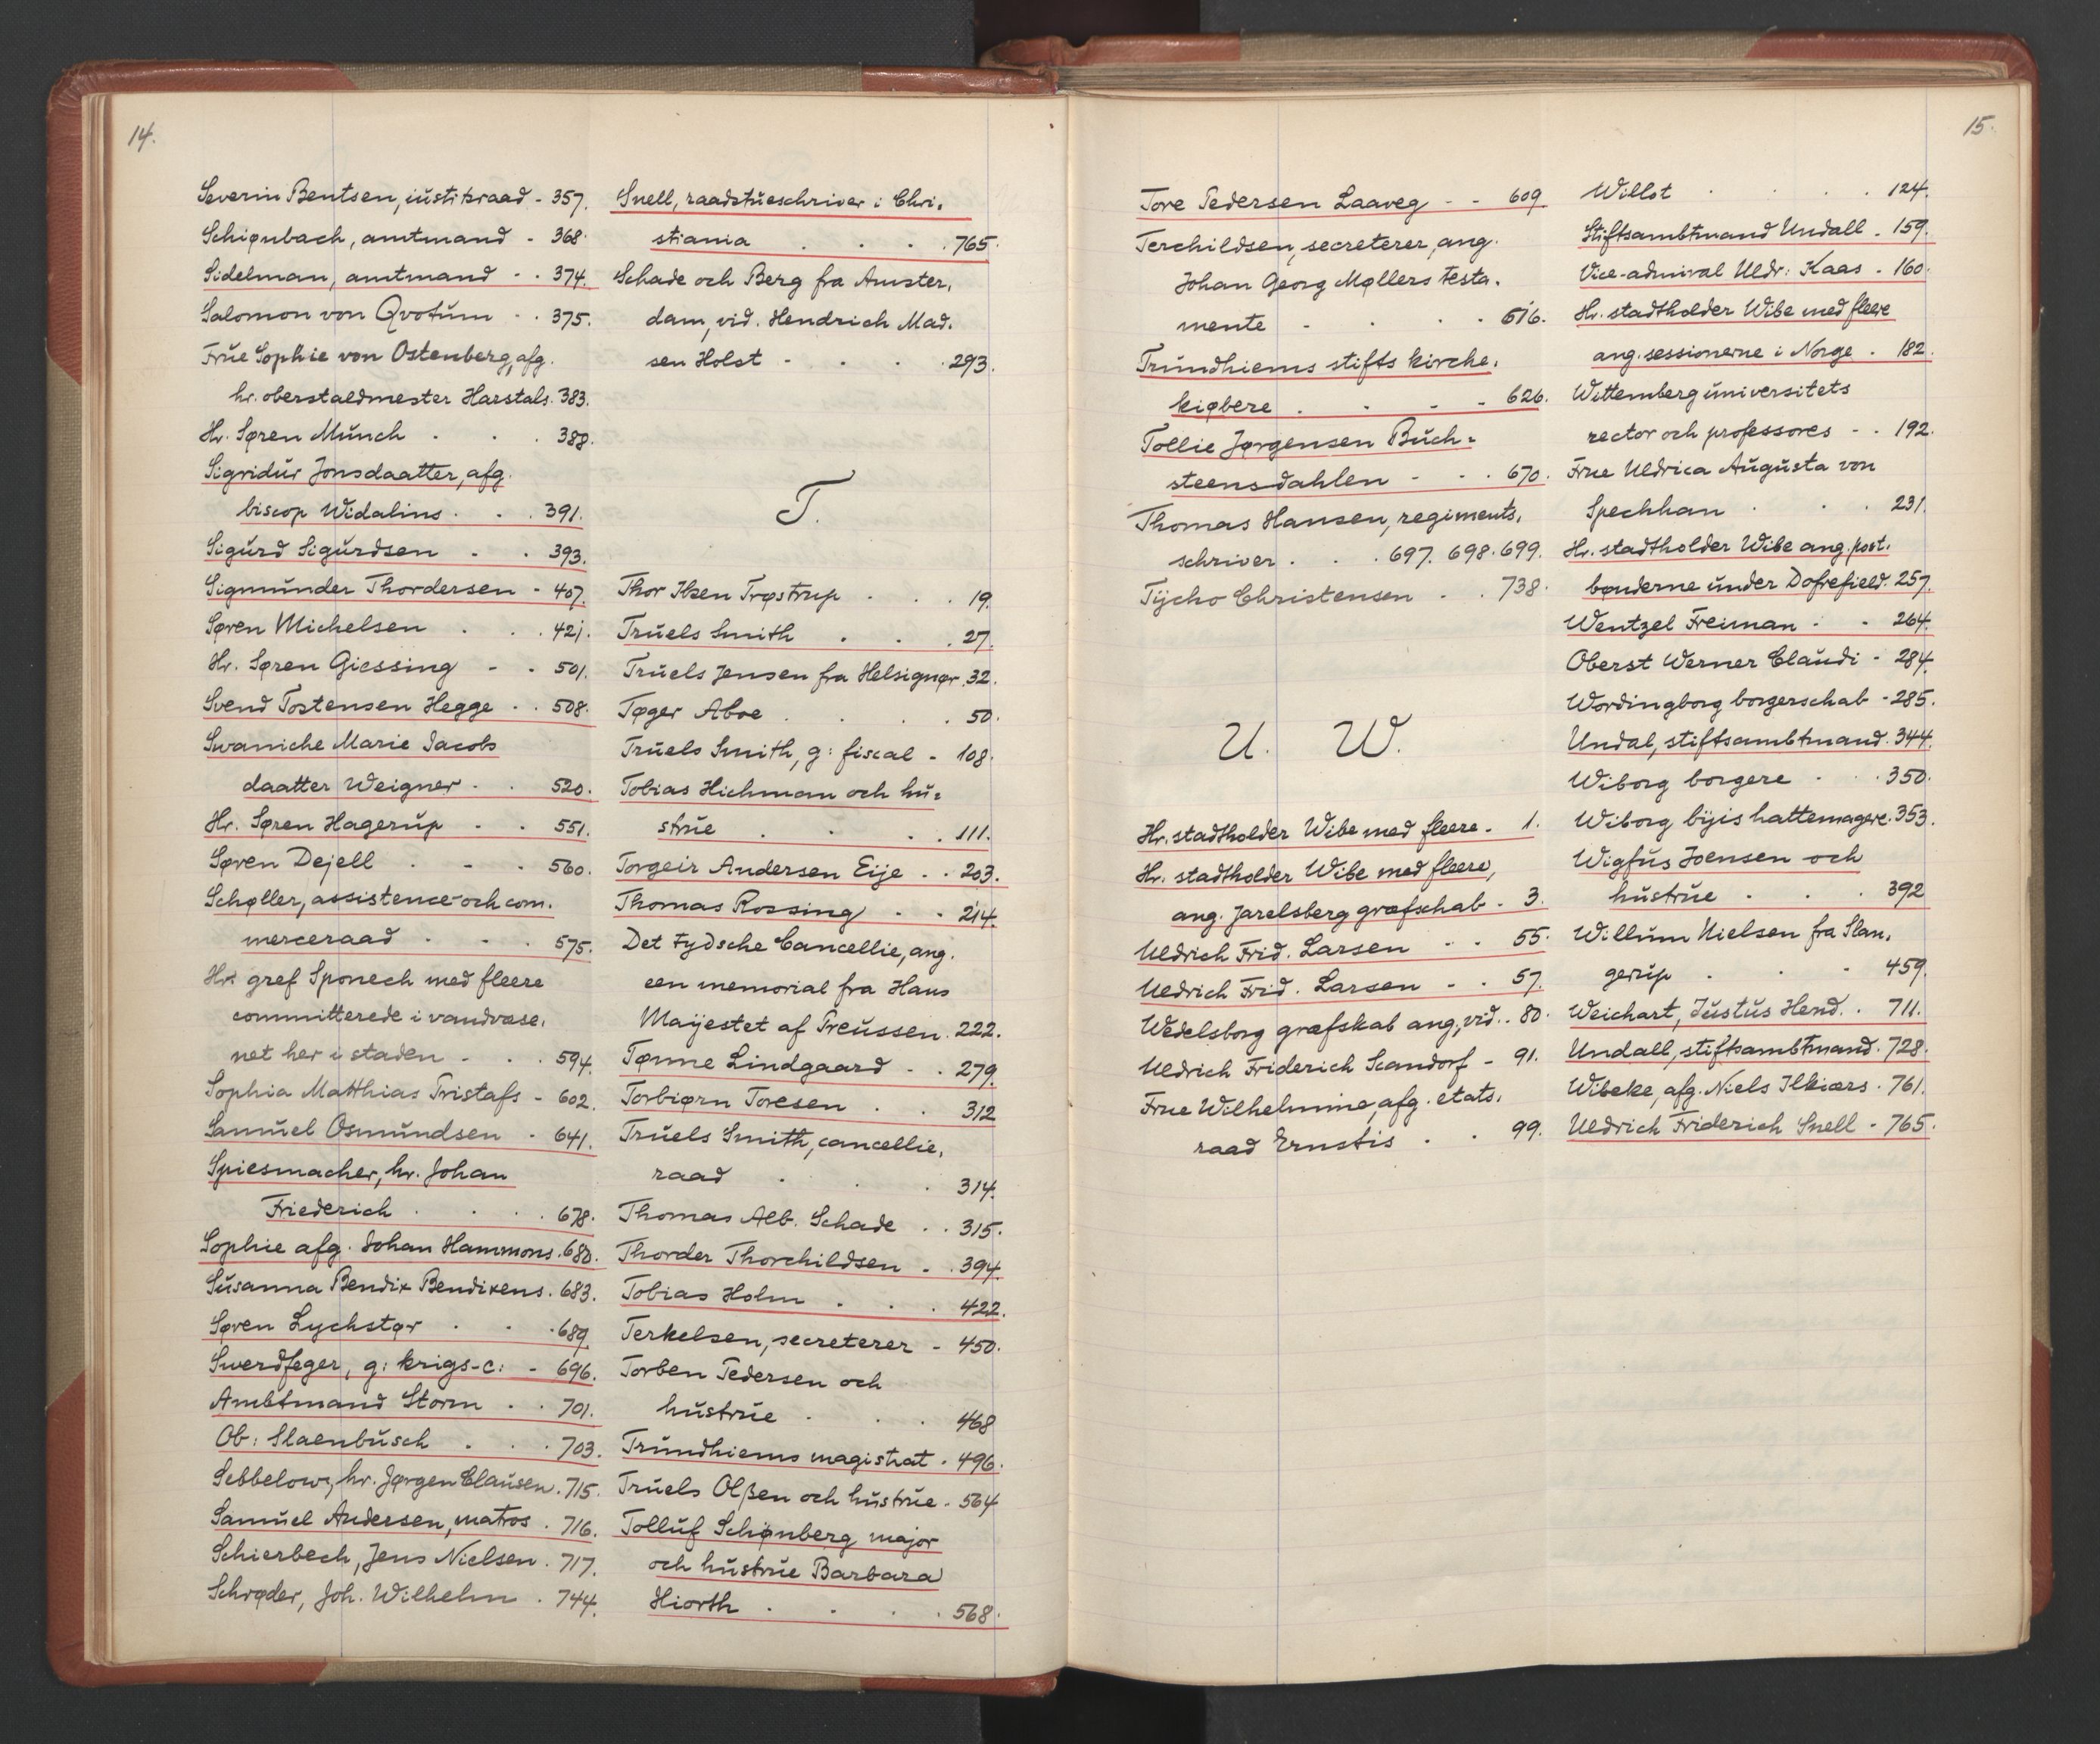 14.
Severin Bentsen, iustitsraad - 357.
Schiønbach, amtmand - 368.
Sidelman, amtmand - . 374.
Salomon von Qvotum - . 375.
Frue Sophie von Ostenberg, afg.
hr. oberstaldmester Harstals. 383.
Hr. Søren Munch . . . 388.
Sigridur Jonsdaatter, afg.
biscop Widalins . . . 391.
Sigurd Sigurdsen . . 393.
Sigmunder Thordersen - 407.
Søren Michelsen . . . 421.
Hr. Søren Giessing - . 501.
Svend Tostensen Hegge . . 508.
Swaniche Marie Jacobs
daatter Weigner . . 520.
Hr. Søren Hagerup . . 551.
Søren Dejell . - . 560.
Schøller, assistence- och com.
merceraad . . . 575.
Hr. gref Sponech med fleere
committerede i vandvæse.
net her i staden - . . 594.
Sophia Matthias Tristafs - 602.
Samuel Osmundsen . 641.
Spiesmacher, hr. Johan
Friederich . . . 678.
Sophie afg. Johan Hammons. 680.
Susanna Bendix Bendixens. 683.
Søren Lychstør . . . 689.
Swerdfeger, g: krigs-c: - 696.
Ambtmand Storm . . 701.
Ob: Slaenbusch . . . 703.
Sebbelow, hr. Jørgen Clausen. 715.
Samuel Andersen, matros . 716.
Schierbech, Jens Nielsen. 717.
Schrøder, Joh. Wilhelm . 744.
Snell, raadstueschriver i Chri.
stiania . . . . 765.
Schade och Berg fra Amster.
dam, vid. Hendrich Mad.
sen Holst - . . . 293.
T.
Thor Ibsen Trøstrup . . . 19.
Truels Smith . . . 27.
Truels Jensen fra Helsignør. 32.
Tøger Aboe . . . . 50.
Truels Smith, g: fiscal - 108.
Tobias Hichman och hu=
strue . . . . 111.
Torgeir Andersen Eije . . 203.
Thomas Rossing . . 214.
Det tydsche Cancellie, ang.
een memorial fra Hans
Mayestet af Preussen. 222.
Tønne Lindgaard . . 279.
Torbiørn Toresen . . 312
Truels Smith, cancellie.
raad . . . 314.
Thomas Alb. Schade . . 315.
Thorder Thorchildsen - . 394.
Tobias Holm . . . 422.
Terkelsen, secreterer - 450.
Torben Pedersen och
hustrue . . . 468
Trundhiems magistrat . 496.
Truels Olßen och hustrue . 564
Tolluf Schiønberg major
och hustrue Barbara
Hiorth . . . . 568.
15.
Tore Pedersen Laaveg - - 609.
Terchildsen, secreterer, ang.
Johan Georg Møllers testa.
mente - . . . 616.
Trundhiems stifts kirche.
kiøbere . . - - 626.
Tollie Jørgensen Buch=
steensdahlen - . . 670.
Thomas Hansen, regiments.
schriver . . . 697. 698. 699.
Tycho Christensen . . 738.
U. W.
Hr. stadtholder Wibe med fleere . 1.
Hr. stadtholder Wibe med fleere,
ang. Jarelsberg græfschab . 3.
Uldrich Frid. Larsen - . 55.
Uldrich Frid. Larsen - . 57.
Wedelsborg græfskab ang, vid. . 80.
Uldrich Friderich Scandorf - 91.
Frue Wilhelmine, afg. etats.
raad Ernstis . . 99.
Willot . . . . 124.
Stiftsambtmand Undall . 159.
Vice-admiral Uldr: Kaas . 160.
Hr. stadtholder Wibe med fleere
ang. sessionerne i Norge . 182.
Wittemberg universitets
rector och professores - . 192.
Frue Uldrica Augusta von
Spechhan . . . 231.
Hr. stadtholder Wibe ang. post.
bønderne under Dofrefield. 257.
Wentzel Freiman . . 264.
Oberst Werner Claudi - 284.
Wordingborg borgerschab - 285.
Undal, stiftsambtmand . 344.
Wiborg borgere . . . 350.
Wiborg byis hattemagere. 353.
Wigfus Joensen och
hustrue . . . 392
Willum Nielsen fra Slan.
gerup . . . 459.
Weichart, Justus Hend. . 711.
Undall, stiftsambtmand . 728.
Wibeke, afg. Niels Ilkiærs . 761.
Uldrich Friderich Snell - 765.